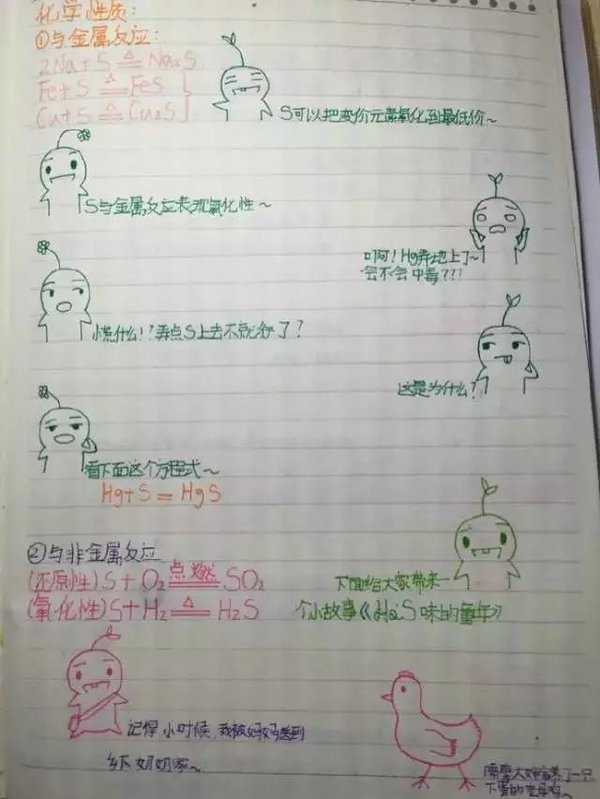 化学性质:
①与金属反应:
2Na+S ≜ Na₂S
Fe+S ≜ FeS
Cu+S ≜ Cu₂S
S可以把变价元素氧化到最低价~
S与金属反应表现氧化性~
啊啊!Hg弄地上了~
会不会中毒???
慌什么!?弄点S上去不就行了?
这是为什么?
看下面这个方程式~
Hg+S=HgS
②与非金属反应
(还原性)S+O₂ 点燃 SO₂
(氧化性)S+H₂ ≜ H₂S
下面给大家带来一
个小故事《H₂S味的童年》
记得小时候,我被妈妈送到
乡下奶奶家~
隔壁大婶家养了一只
下蛋的老母鸡~